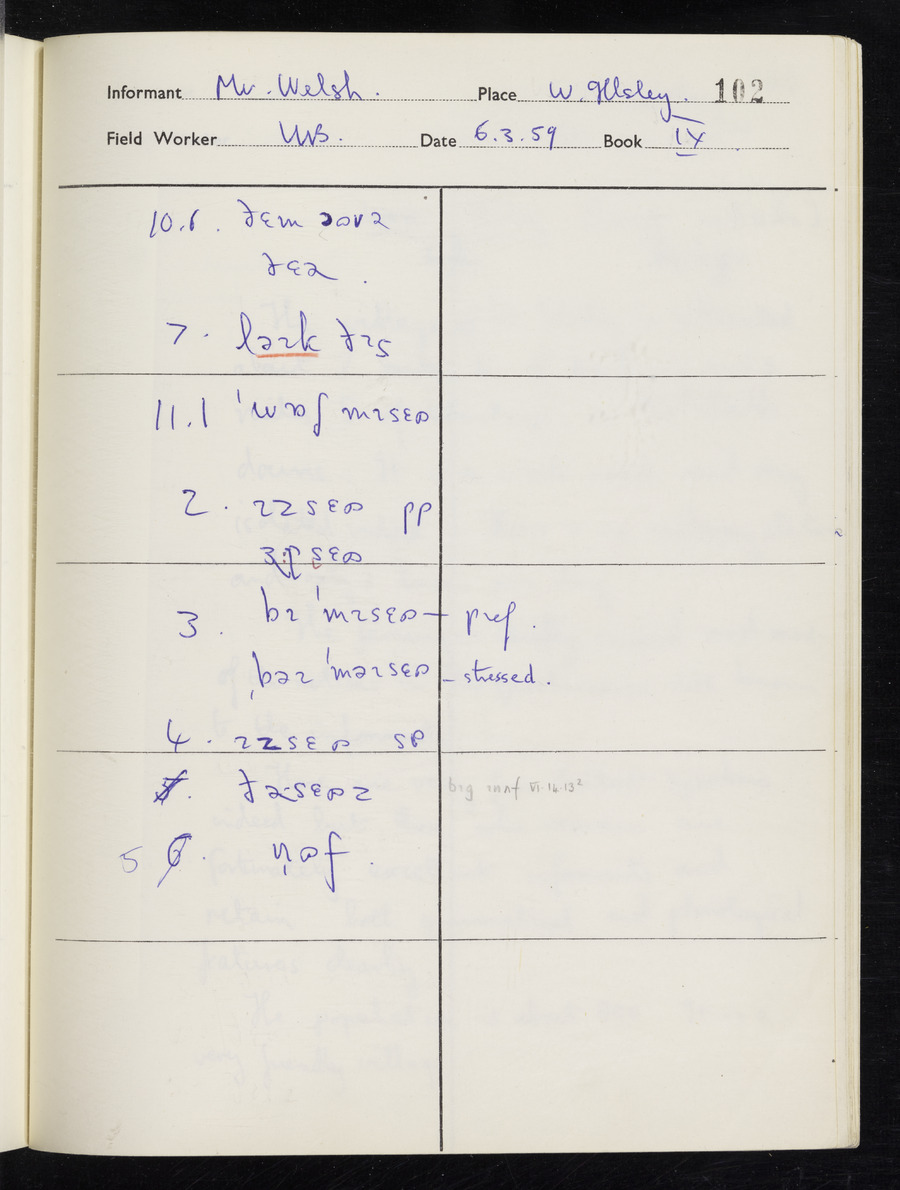 Informant Mr. Welsh. Place W. Ilsley. 102
Field Worker WB. Date 6.3.59 Book IX
10.6. ðɛm
ðɛə.
7. laɪk ðɪs
11.1 ˈwɒʃ mɪsɛɒ
2. ɪzsɛɒ pp
sɛɒ
3. bɪ ˈmɪsɛɒ – pref.
ˌbəɪ ˈməɪsɛɒ – stressed.
4. ɪzsɛɒ sp
ðəsɛɒz
big ɪnʌf VI.14.13²
5 6.